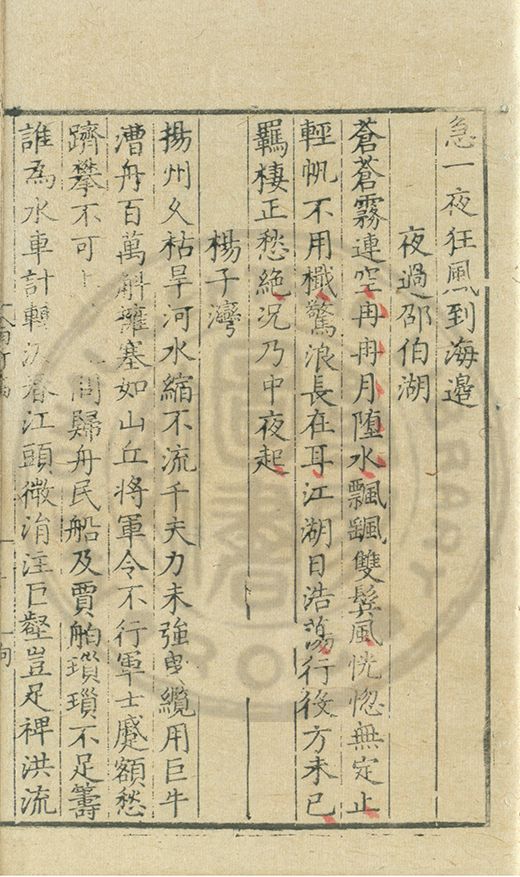 急一夜狂風到海邊
夜過邵伯湖
蒼蒼霧連空冉冉月墮水飄颻雙鬢風恍惚無定止
輕帆不用檝驚浪長在耳江湖日浩蕩行役方未已
羈棲正愁絶况乃中夜起
楊子灣
揚州久枯旱河水縮不流千夫力未強曵纜用巨牛
漕舟百萬斛壅塞如山丘將軍令不行軍士蹙額愁
躋攀不可 問歸舟民船及賈舶瑣瑣不足籌
誰為水車計轉 春江頭微涓注巨壑豈足裨洪流